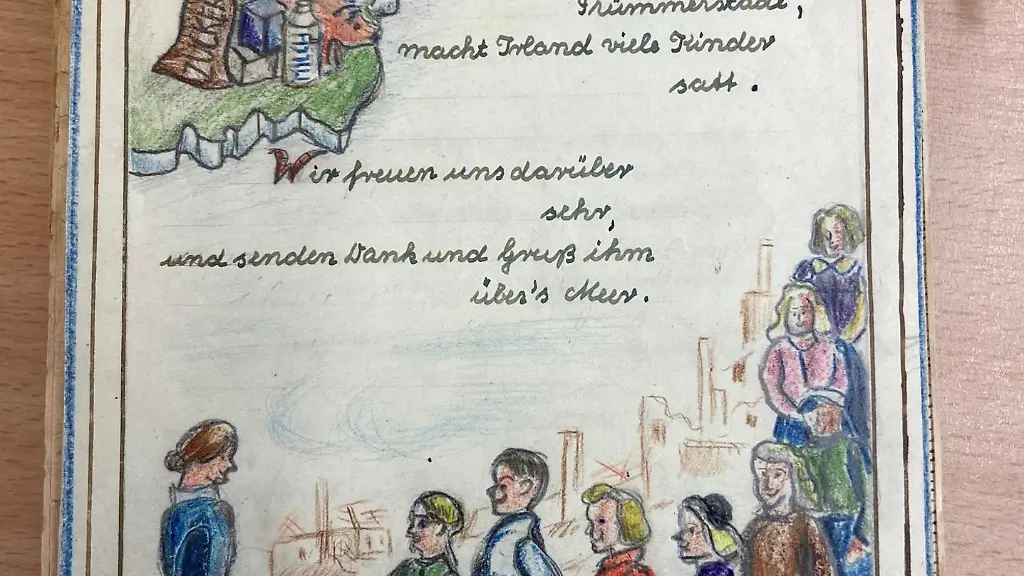 ZUCKER
Trümmerstadt,
macht Irland viele Kinder
satt.
Wir freuen uns darüber
sehr,
und senden Dank und Gruß ihm
über's Meer.